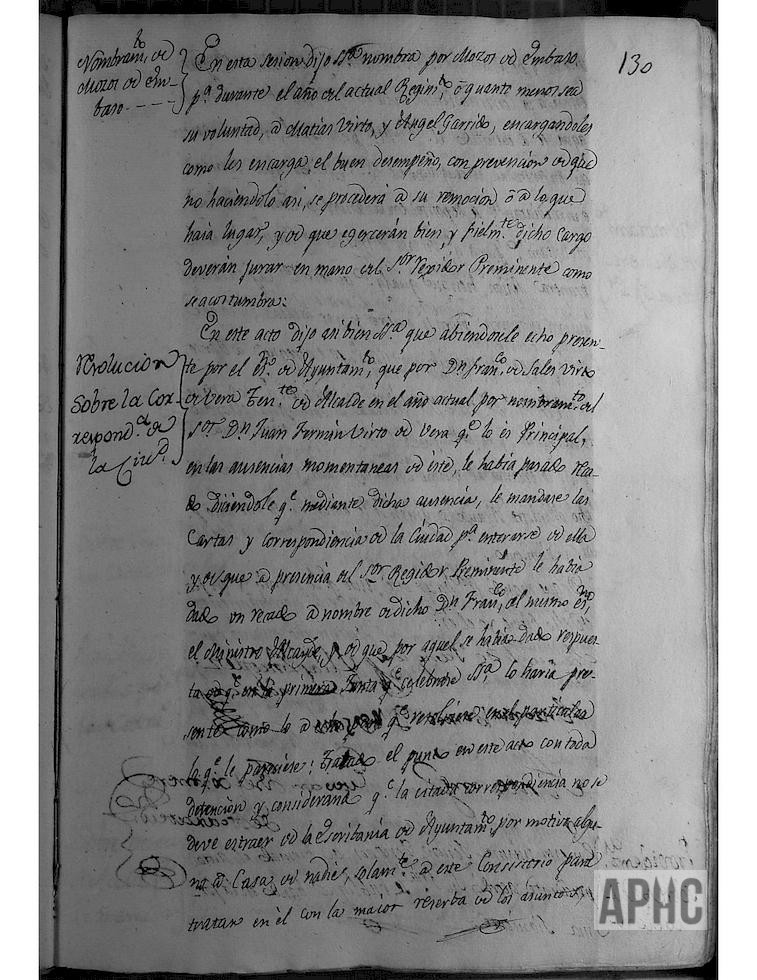 130
Nombram.to de
Mozos de Em-
baso - - - -
En esta sesion dijo S.S.ª nombra por Mozos de Embaso
p.ª durante el año del actual Regim.to, ò quanto menos sea
su voluntad, à Matias Virto, y Angel Garrido, encargandoles
como les encarga el buen desempeño, con prevencion de que
no haciendolo asi, se procederá à su remocion ò à lo que
haia lugar, y de que egercerán bien y fielm.te dicho Cargo
deverán jurar en mano del S.or Regidor Preminente como
se acostumbra:
resolucion
Sobre la Cor-
respond.ª de
la Ciu.d
En este acto dijo asi bien S.S.ª que abiendosele echo presen-
te por el Es.no de Ayuntam.to, que por D.n Fran.co de Sales Virto
de Vera Ten.te de Alcalde en el año actual por nombram.to del
S.or D.n Juan Fermin Virto de Vera q.e lo es Principal,
en las ausencias momentaneas de este, le habia pasado reca-
do diciendole q.e mediante dicha ausencia, le mandase las
Cartas y correspondiencia de la Ciudad p.ª enterarse de ella
y de que à presencia del S.or Regidor Preminente le habia
dado un recado à nombre de dicho D.n Fran.co, al mismo es.no,
el Ministro Alcayde, y de que por aquel se habia dado respues-
ta de q.e en la primera Junta q.e celebrase S.S.ª lo haria pre-
sente como lo à echo para q.e resolviese en el particular
lo q.e le pareciese: Tratado el punto en este acto con toda
detencion y considerando q.e la citada correspondiencia no se
deve estraer de la Escribania de Ayuntam.to por motivo algu-
no à Casa de nadie, solam.te à este Consistorio para
tratar en èl con la maior reserba de los asuntos
APHC